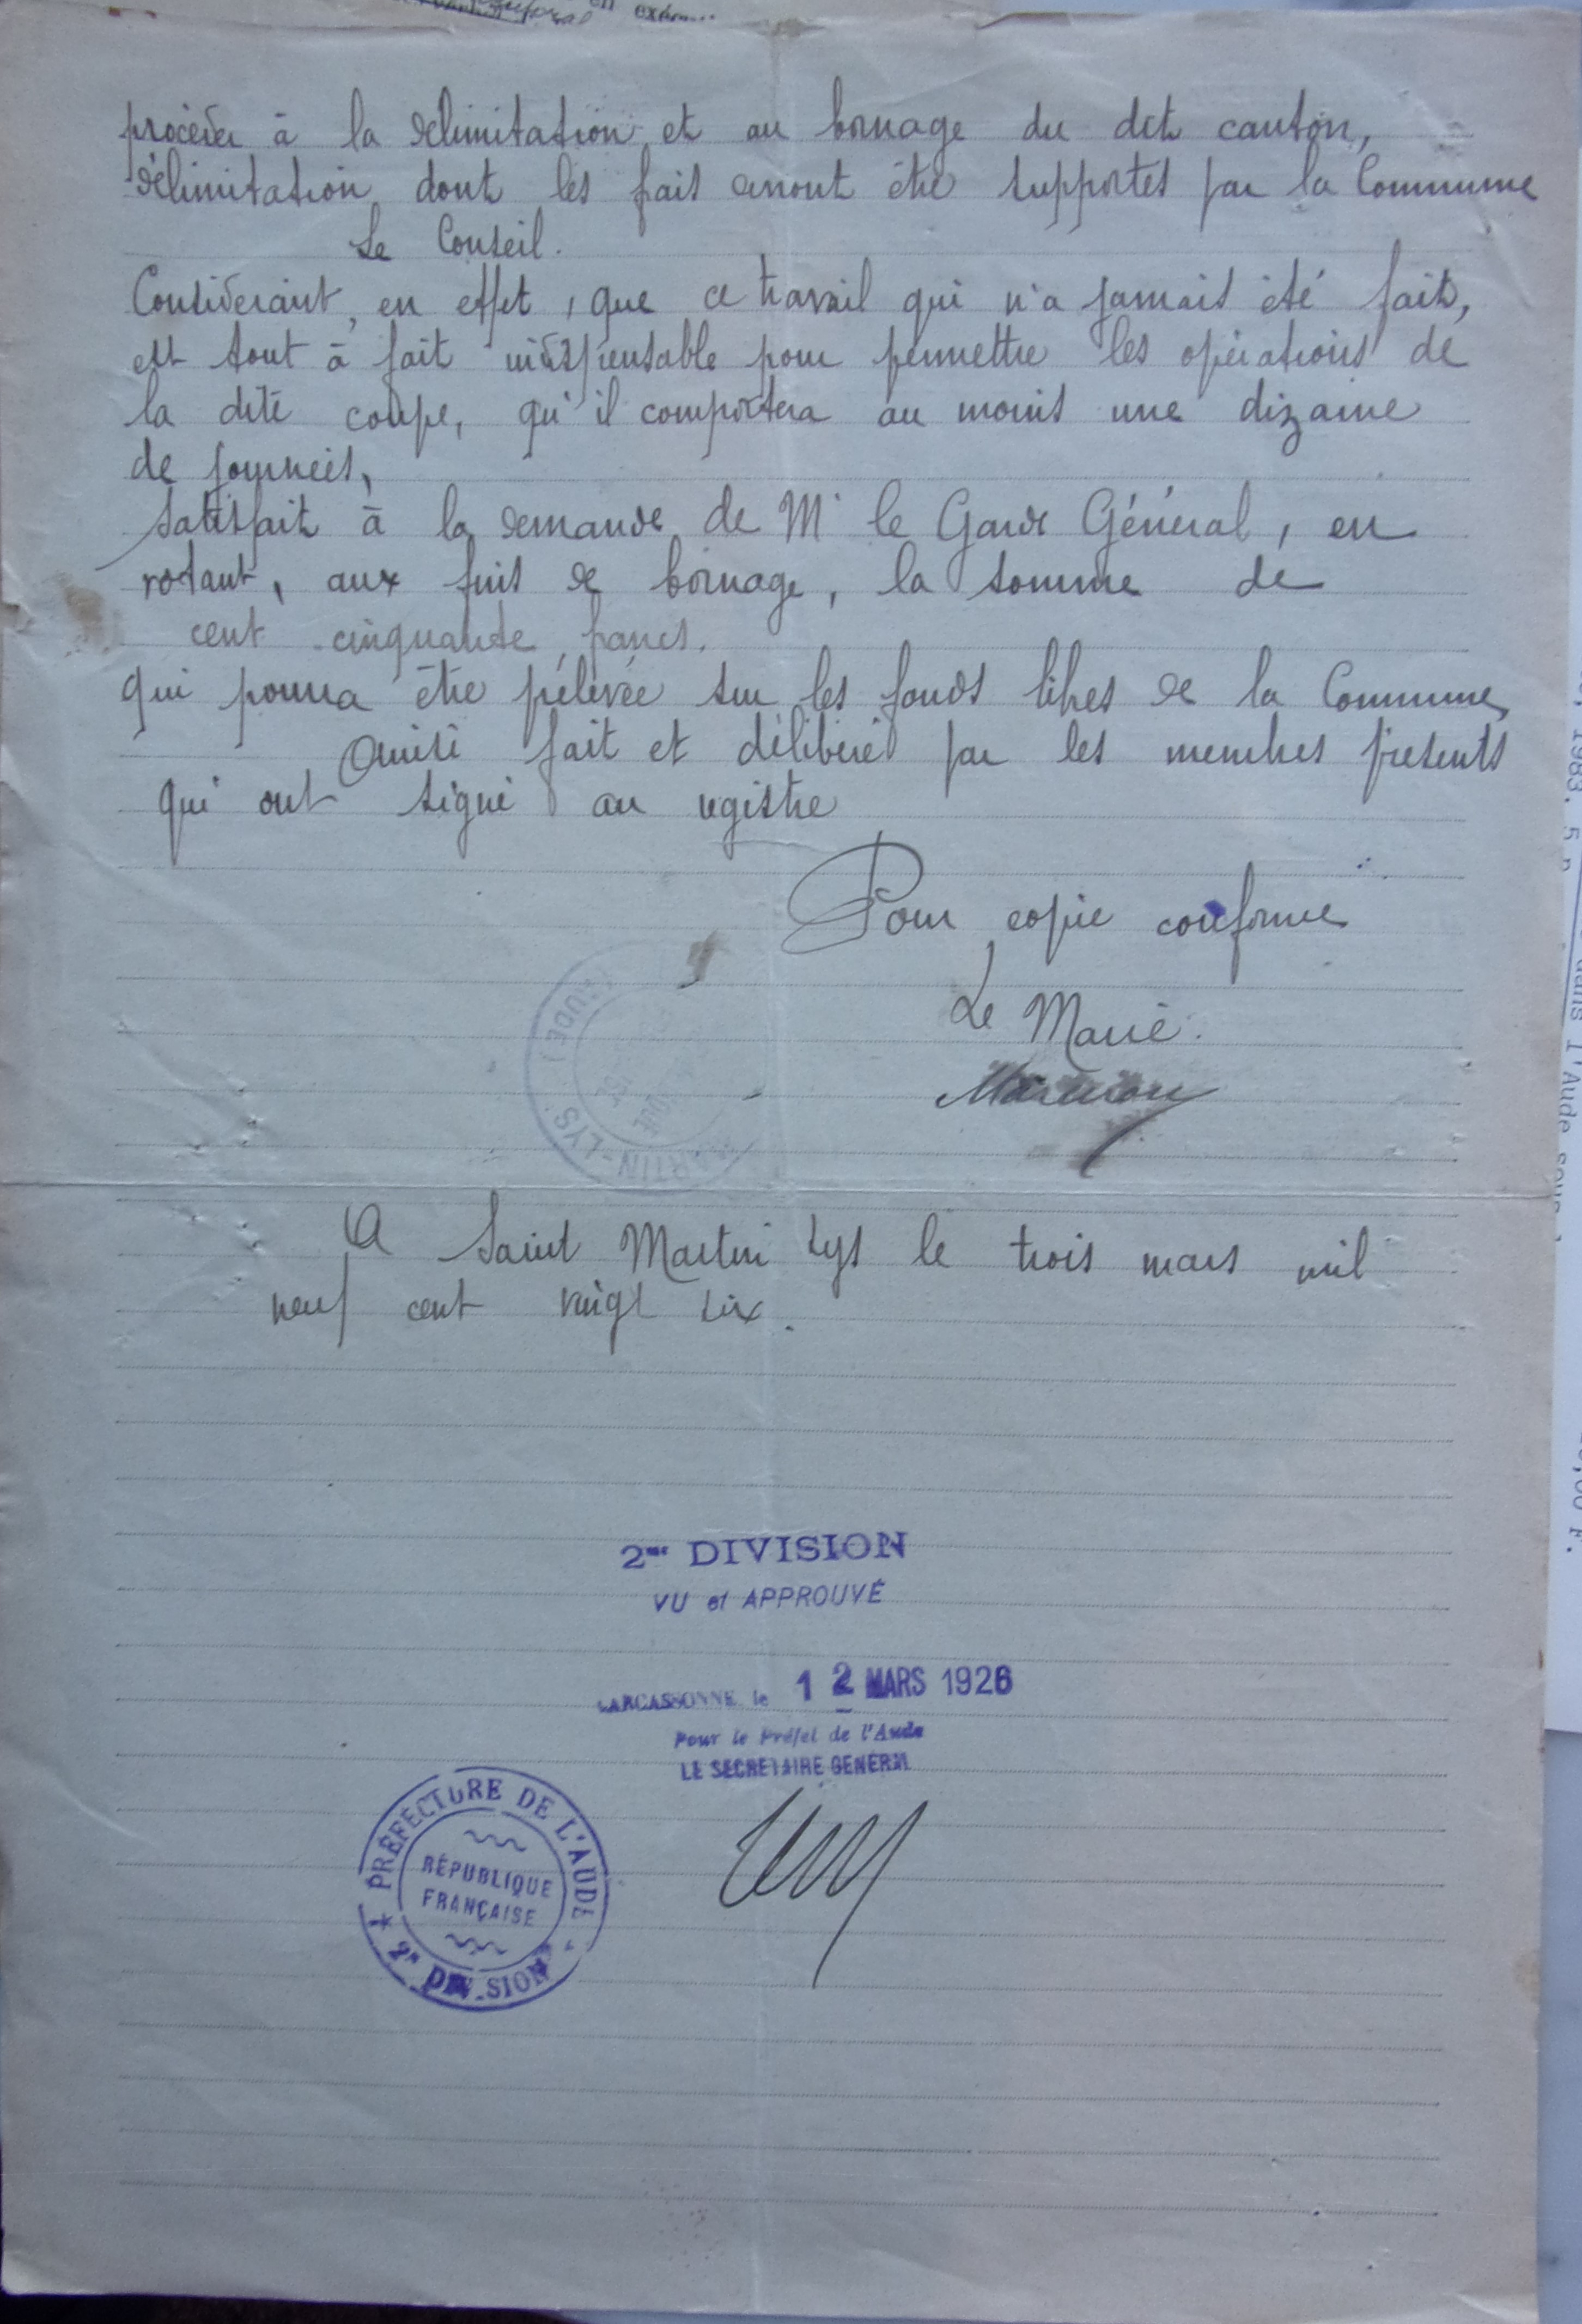 procéder à la délimitation et au bornage du dit canton,
délimitation dont les frais devront être supportés par la Commune
Le Conseil.
Considerant, en effet, que ce travail qui n'a jamais été fait,
est tout à fait indispensable pour permettre les opérations de
la dite coupe, qu'il comportera au moins une dizaine
de journées,
Satisfait à la demande de Mr le Garde Général, en
votant, aux fins de bornage, la somme de
cent cinquante francs.
qui pourra être prélevée sur les fonds libres de la Commune,
Ainsi fait et délibéré par les membres présents
qui ont signé au registre
Pour copie conforme
Le Maire.
A Saint Martin Lys le trois mars mil
neuf cent vingt six.
2me DIVISION
VU et APPROUVÉ
CARCASSONNE, le 12 MARS 1926
Pour le Préfet de l'Aude
LE SECRETAIRE GENERAL
PRÉFECTURE DE L'AUDE
RÉPUBLIQUE
FRANÇAISE
* 2e DIVISION
MARTIN-LYS (AUDE)
1983. 5 p
dans l'Aude